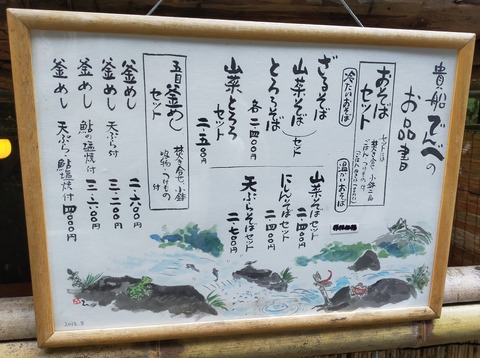 貴船でんべの
お品書
おそば
セット
セットには
焚き合せ 小鉢二品
ごはん つけもの付
冷たいおそば
ざるそば
山菜そば
とろろそば
セット
各 二.四〇〇円
山菜とろろ
セット
二.五〇〇円
温かいおそば
山菜そばセット
二.四〇〇円
にしんそばセット
二.四〇〇円
天ぷらそばセット
二.七〇〇円
五目釜めし
セット
焚き合せ 小鉢
吸物 つけもの
付
釜めし
二.六〇〇円
釜めし 天ぷら付
三.一〇〇円
釜めし 鮎の塩焼付
三.六〇〇円
釜めし 天ぷら 鮎塩焼付
四〇〇〇円